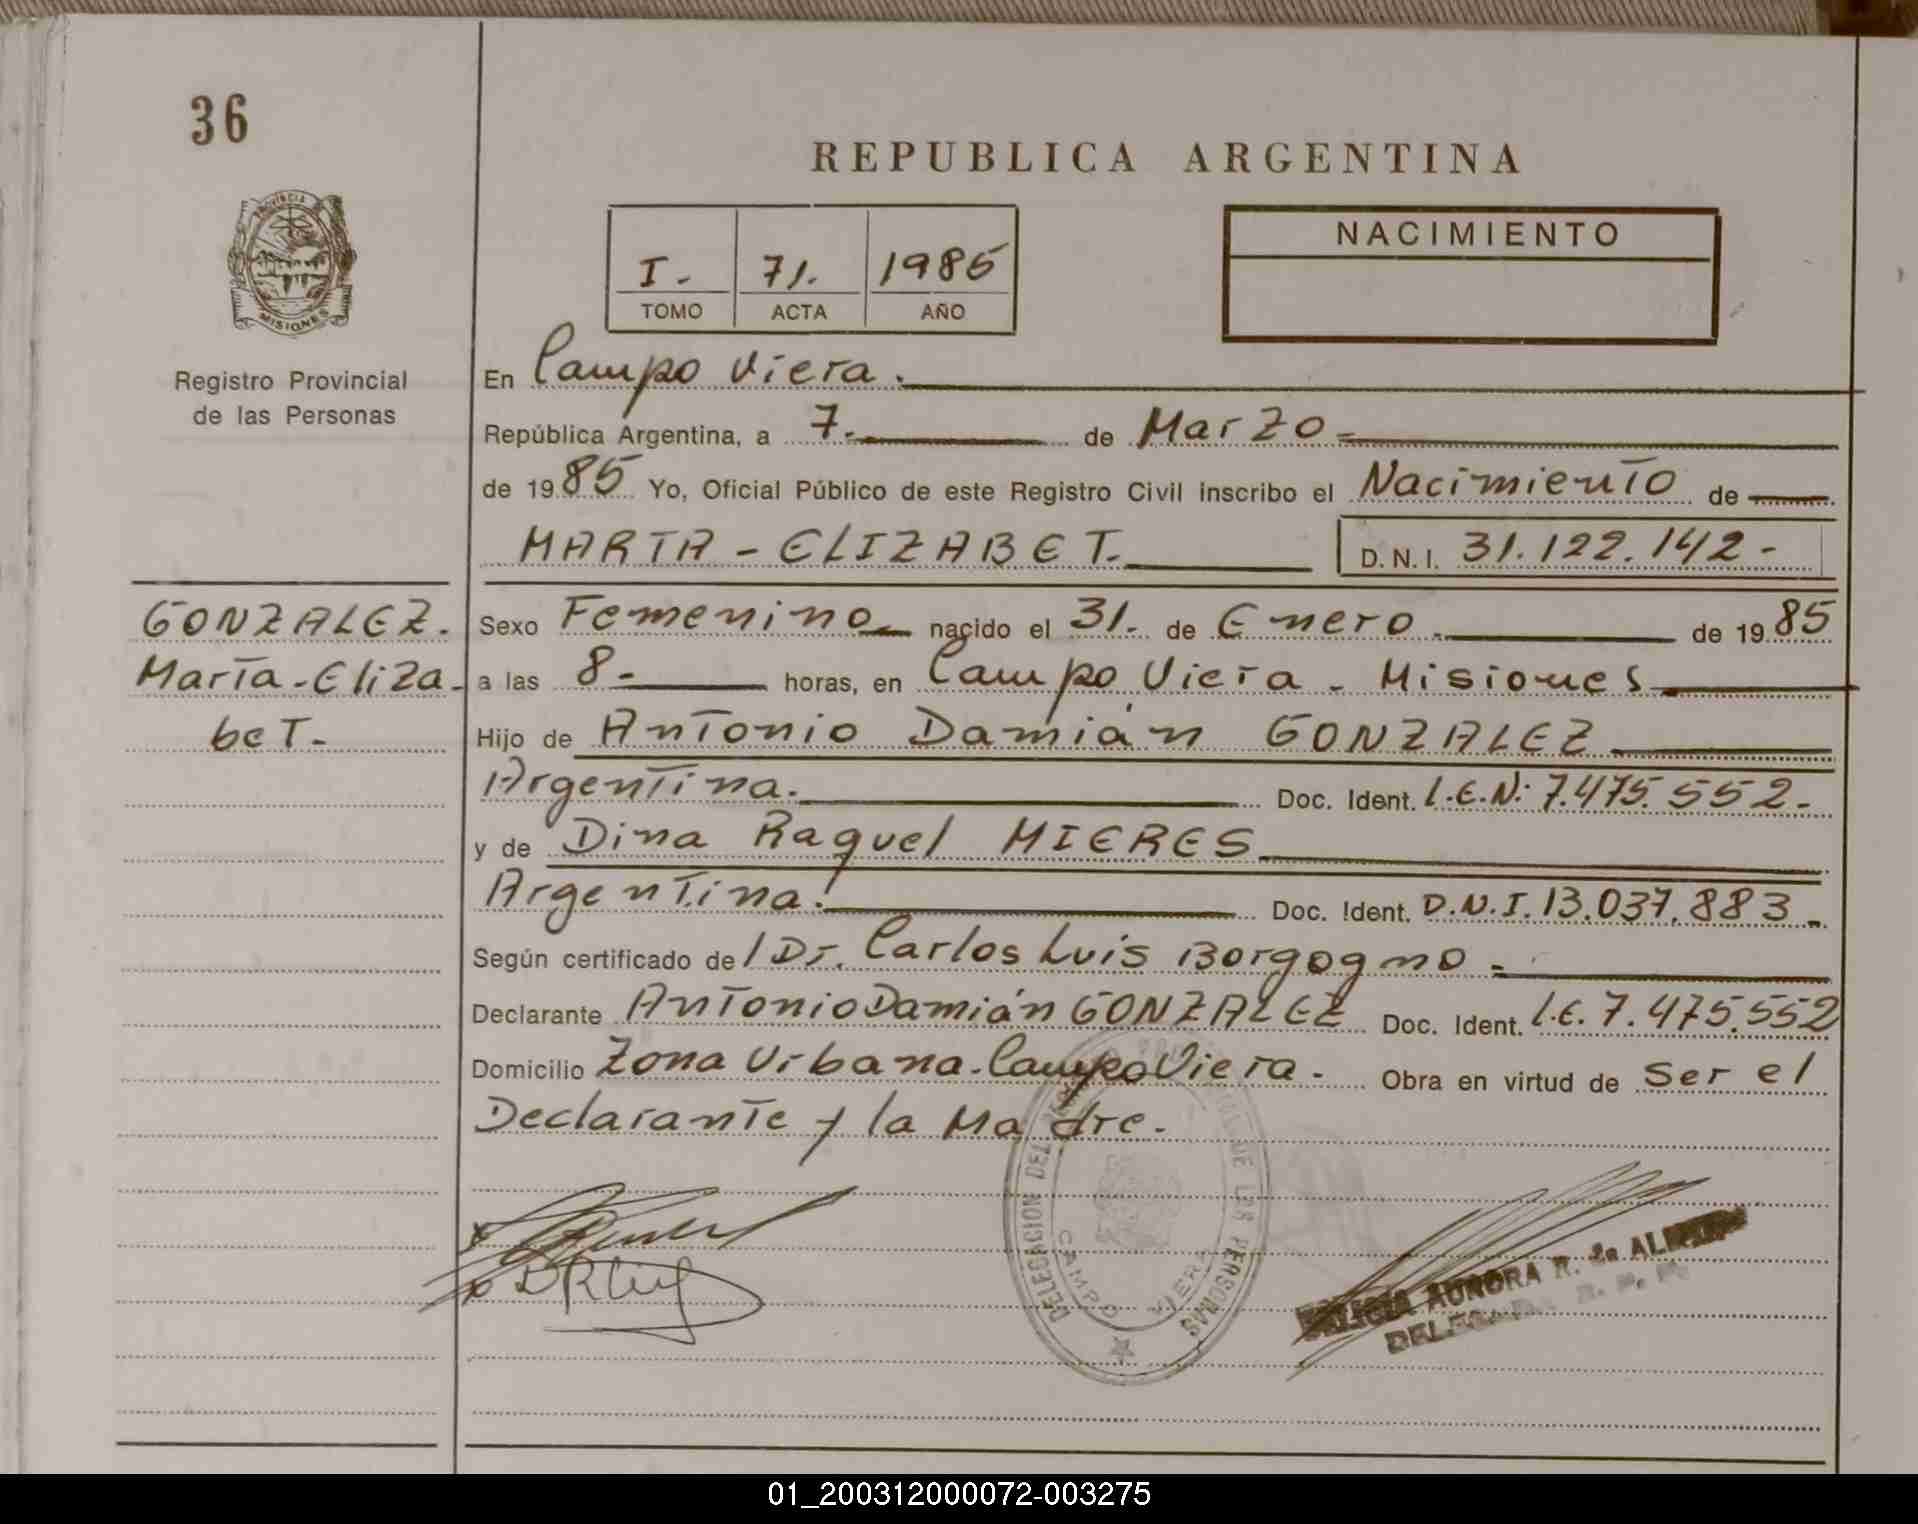 36
REPUBLICA ARGENTINA
PROVINCIA
MISIONES
Registro Provincial
de las Personas
I.- 71. 1985
TOMO ACTA AÑO
NACIMIENTO
En Campo Viera.
República Argentina, a 7.- de Marzo
de 1985 Yo, Oficial Público de este Registro Civil inscribo el Nacimiento de
MARTA - ELIZABET. D.N.I. 31.122.142-
GONZALEZ.
Marta-Eliza-
beT.-
Sexo Femenino nacido el 31. de Enero de 1985
a las 8- horas, en Campo Viera - Misiones
Hijo de Antonio Damián GONZALEZ
Argentina. Doc. Ident. L.E.N: 7.475.552-
y de Dina Raquel MIERES
Argentina. Doc. Ident. D.N.I. 13.037.883-
Según certificado del Dr. Carlos Luis Borgogno
Declarante Antonio Damián GONZALEZ Doc. Ident. L.E. 7.475.552
Domicilio Zona Urbana-Campo Viera.- Obra en virtud de Ser el
Declarante y la Madre.-
DELEGACION DEL DE LAS PERSONAS
CAMPO VIERA
AURORA R. de
01_200312000072-003275